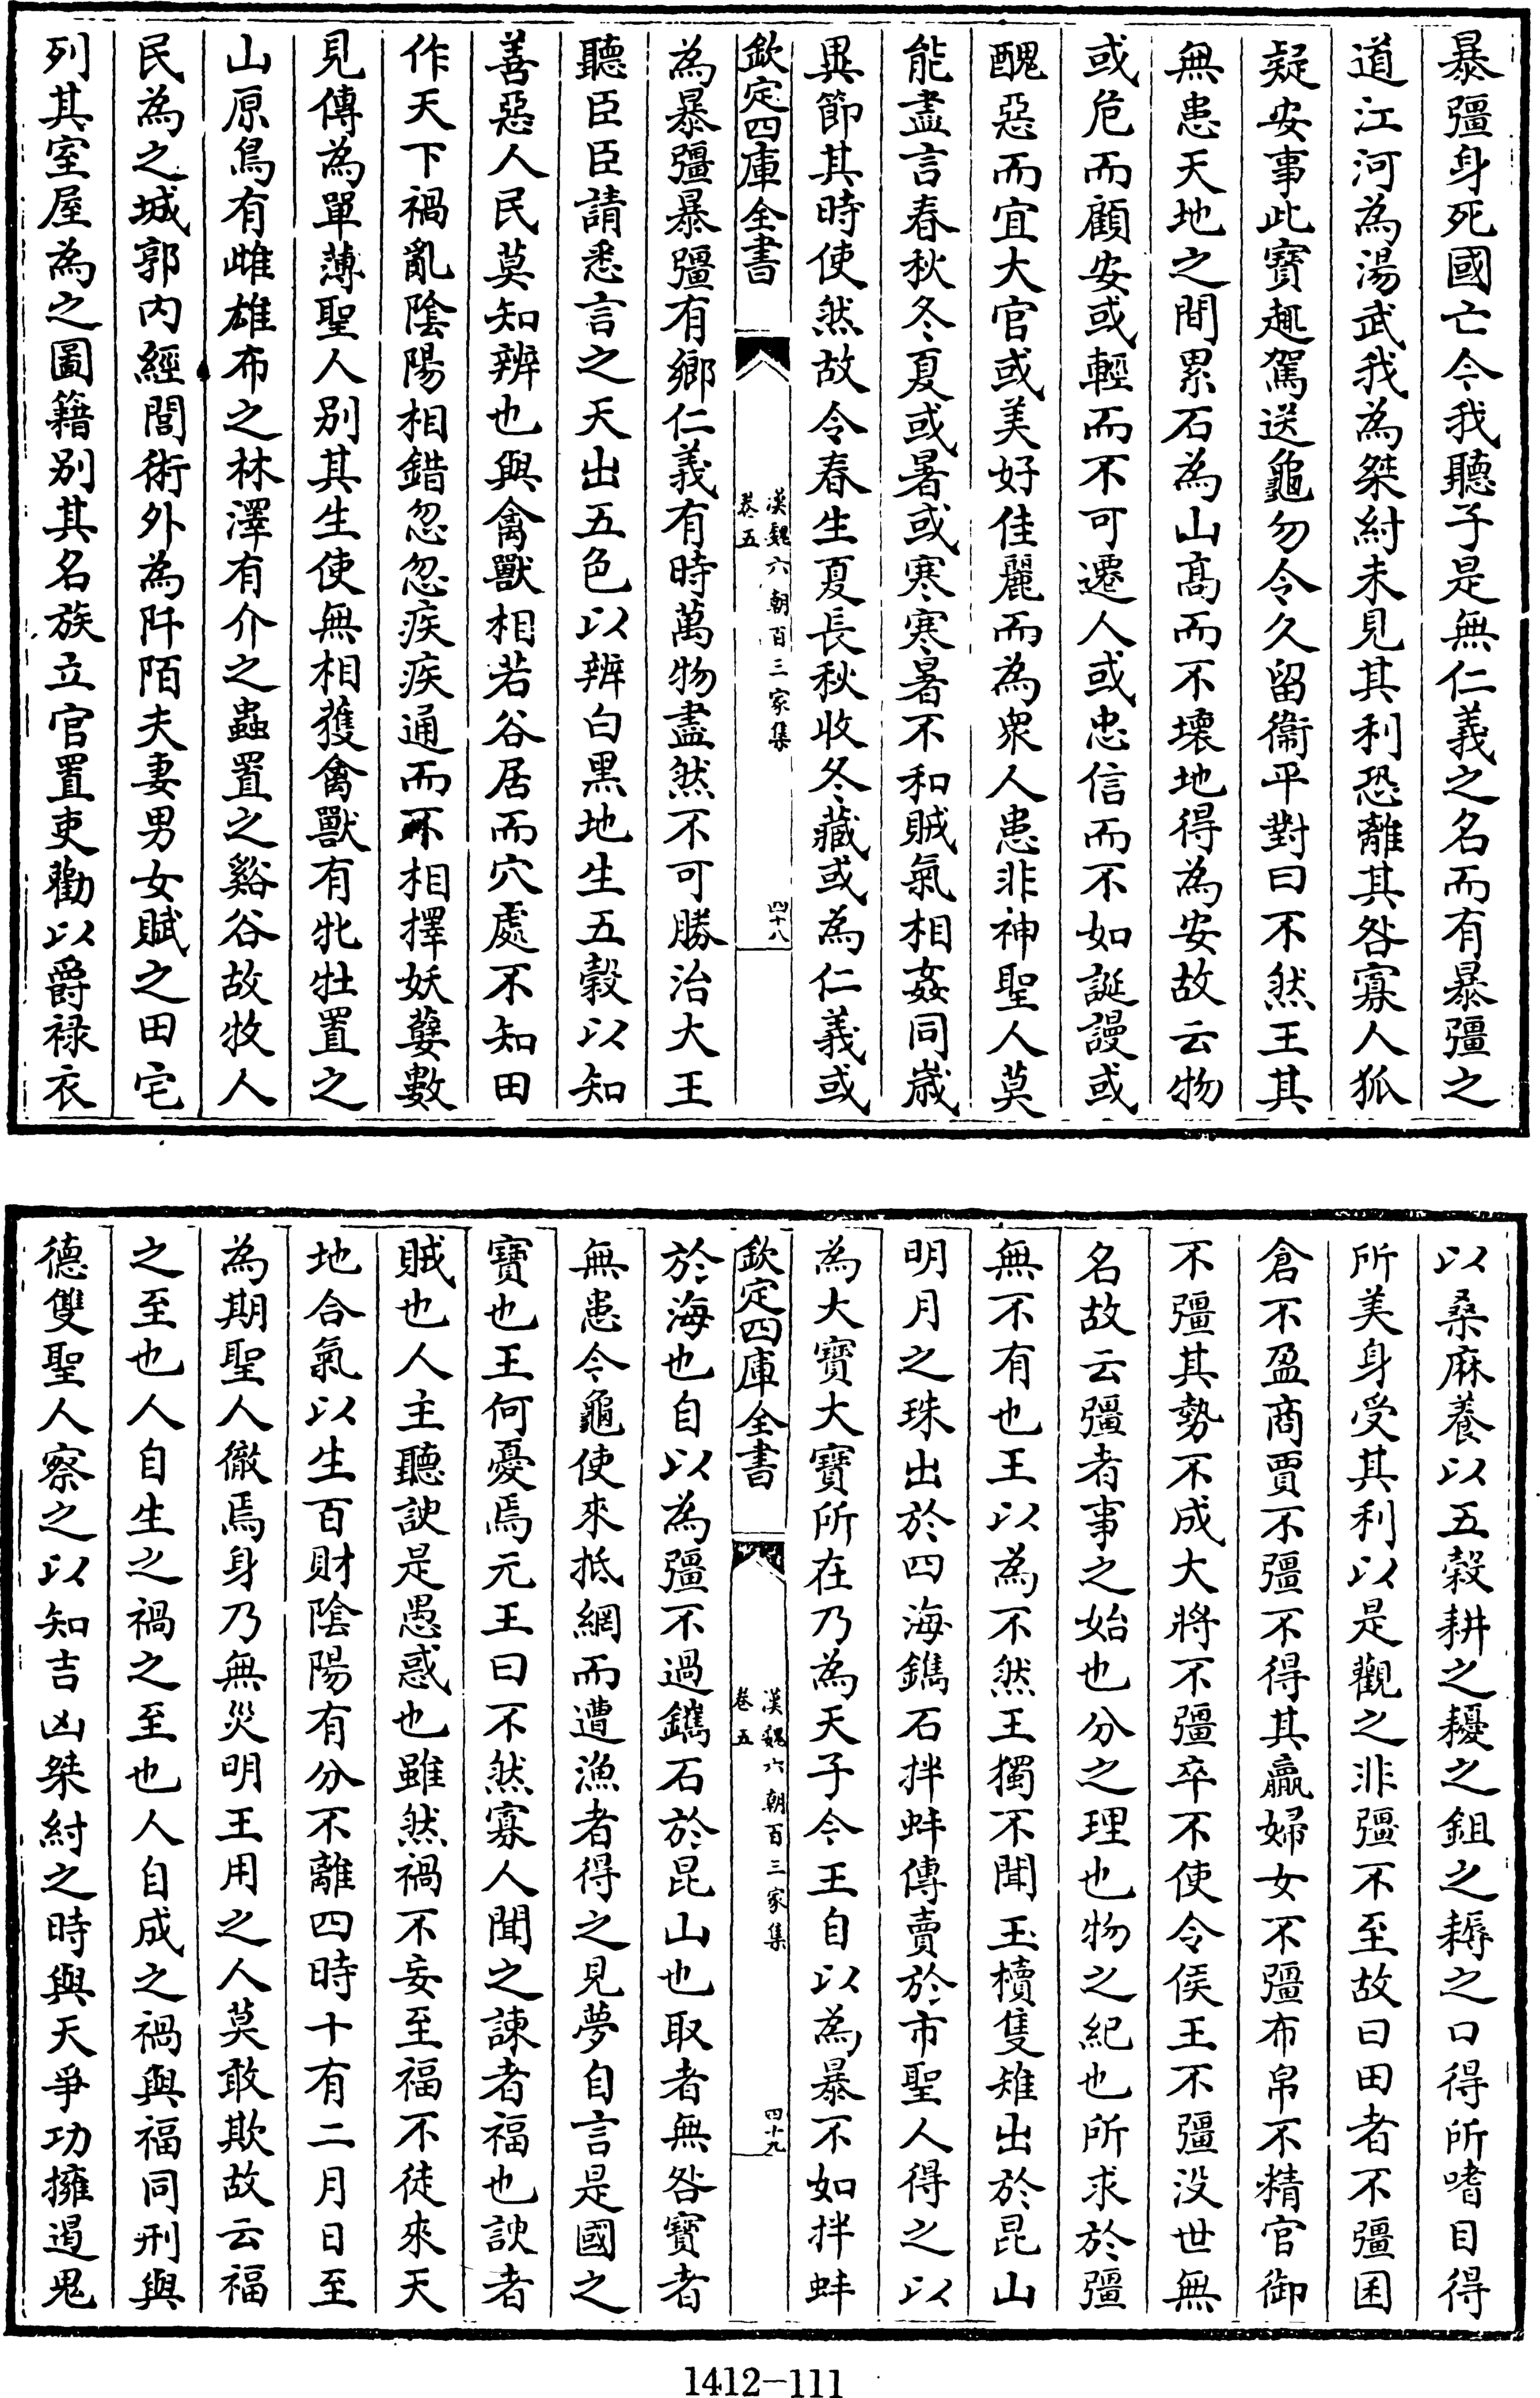 暴彊身死國亡今我聽子是無仁義之名而有暴彊之
道江河為湯武我為桀紂未見其利恐離其咎寡人狐
疑安事此寶趣駕送龜勿令久留衞平對曰不然王其
無患天地之間累石為山髙而不壞地得為安故云物
或危而顧安或輕而不可遷人或忠信而不如誕謾或
醜惡而宜大官或美好佳麗而為衆人患非神聖人莫
能盡言春秋冬夏或暑或寒寒暑不和賊氣相姦同歲
異節其時使然故令春生夏長秋收冬藏或為仁義或
欽定四庫全書
漢魏六朝百三家集
卷五
四十八
為暴彊暴彊有鄉仁義有時萬物盡然不可勝治大王
聽臣臣請悉言之天出五色以辨白黒地生五穀以知
善惡人民莫知辨也與禽獸相若谷居而穴處不知田
作天下禍亂陰陽相錯忽忽疾疾通而不相擇妖孽數
見傳為單薄聖人别其生使無相獲禽獸有牝牡置之
山原鳥有雌雄布之林澤有介之蟲置之谿谷故牧人
民為之城郭内經閭術外為阡陌夫妻男女賦之田宅
列其室屋為之圖籍别其名族立官置吏勸以爵禄衣
以桑麻養以五穀耕之耰之鉏之耨之口得所嗜目得
所美身受其利以是觀之非彊不至故曰田者不彊囷
倉不盈商賈不彊不得其贏婦女不彊布帛不精官御
不彊其勢不成大將不彊卒不使令侯王不彊没世無
名故云彊者事之始也分之理也物之紀也所求於彊
無不有也王以為不然王獨不聞玉櫝隻雉出於昆山
明月之珠出於四海鐫石拌蚌傳賣於市聖人得之以
為大寶大寶所在乃為天子今王自以為暴不如拌蚌
欽定四庫全書
漢魏六朝百三家集
卷五
四十九
於海也自以為彊不過鐫石於昆山也取者無咎寶者
無患今龜使來抵網而遭漁者得之見夢自言是國之
寶也王何憂焉元王曰不然寡人聞之諫者福也諛者
賊也人主聽諛是愚惑也雖然禍不妄至福不徒來天
地合氣以生百財陰陽有分不離四時十有二月日至
為期聖人徹焉身乃無災明王用之人莫敢欺故云福
之至也人自生之禍之至也人自成之禍與福同刑與
德雙聖人察之以知吉凶桀紂之時與天爭功擁遏鬼
1412—111